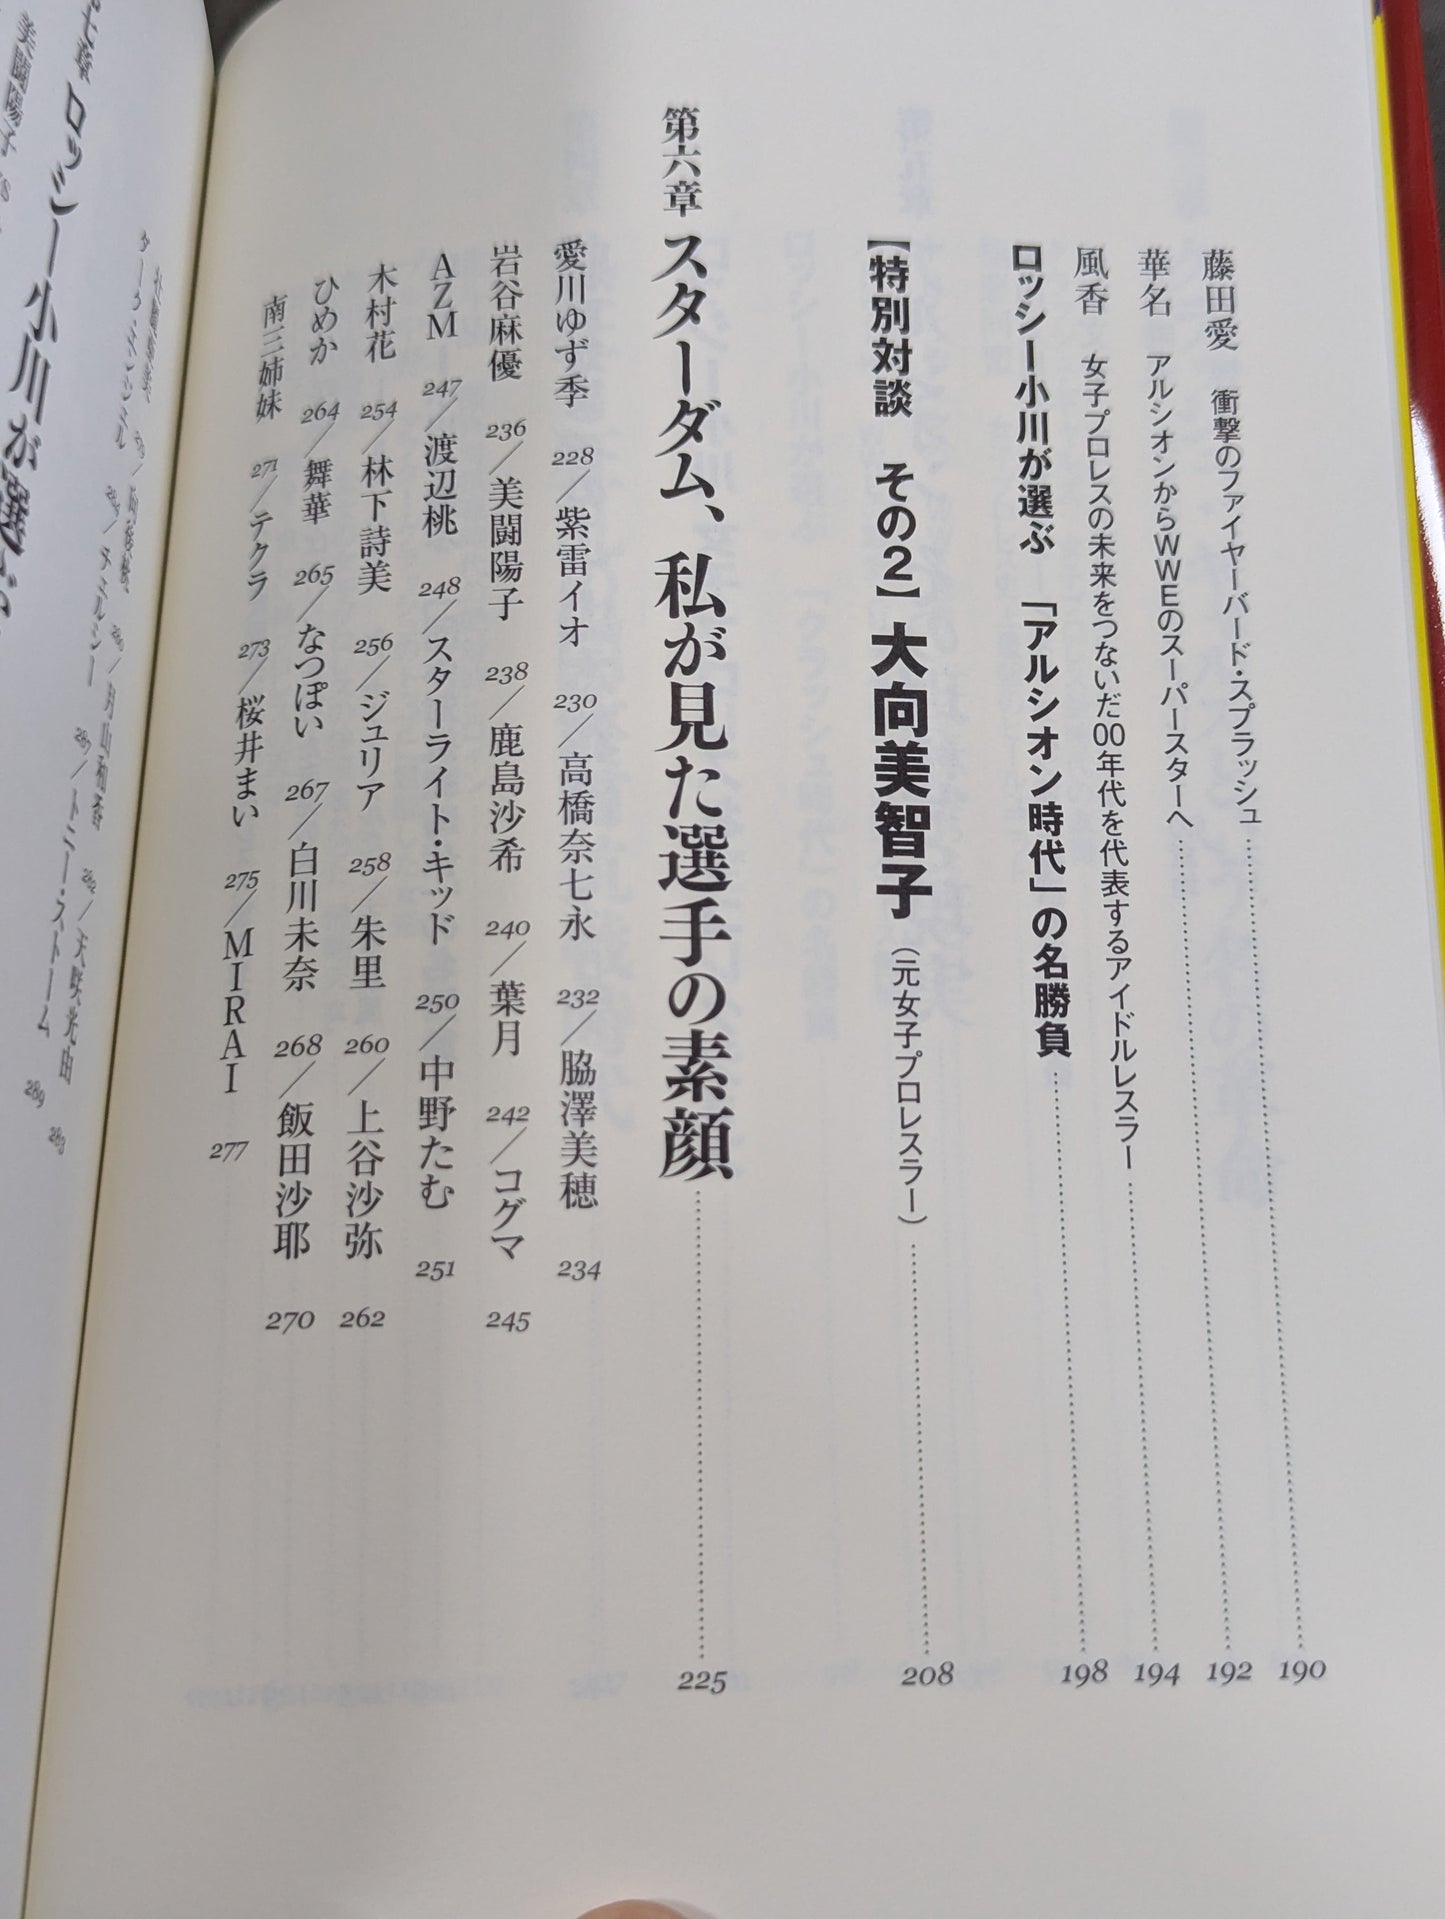 藤田愛　衝撃のファイヤーバード・スプラッシュ 190
華名　アルシオンからWWEのスーパースターへ 192
風香　女子プロレスの未来をつないだ00年代を代表するアイドルレスラー 194
ロッシー小川が選ぶ　「アルシオン時代」の名勝負 198
【特別対談　その2】大向美智子（元女子プロレスラー） 208
第六章 スターダム、私が見た選手の素顔 225
愛川ゆず季 228／紫雷イオ 230／高橋奈七永 232／脇澤美穂 234
岩谷麻優 236／美闘陽子 238／鹿島沙希 240／葉月 242／コグマ 245
AZM 247／渡辺桃 248／スターライト・キッド 250／中野たむ 251
木村花 254／林下詩美 256／ジュリア 258／朱里 260／上谷沙弥 262
ひめか 264／舞華 265／なつぽい 267／白川未奈 268／飯田沙耶 270
南三姉妹 271／テクラ 273／桜井まい 275／MIRAI 277
月山和香 282／天咲光由 283
トニー・ストーム 289
ロッシー小川が選ぶ
美闘陽子